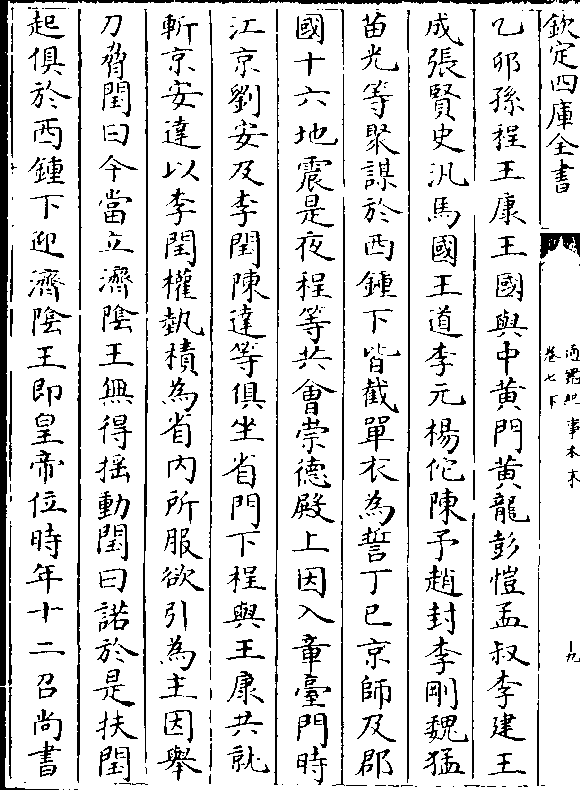 欽定四庫全書
通鑑紀事本末
卷七下
十九
乙卯孫程王康王國與中黄門黄龍彭愷孟叔李建王
成張賢史汎馬國王道李元楊佗陳予趙封李剛魏猛
苗光等聚謀於西鍾下皆截單衣為誓丁巳京師及郡
國十六地震是夜程等共會崇德殿上因入章臺門時
江京劉安及李閏陳達等俱坐省門下程與王康共就
斬京安達以李閏權埶積為省内所服欲引為主因舉
刀脅閏曰今當立濟隂王無得揺動閏曰諾於是扶閏
起俱於西鍾下迎濟隂王即皇帝位時年十二召尚書